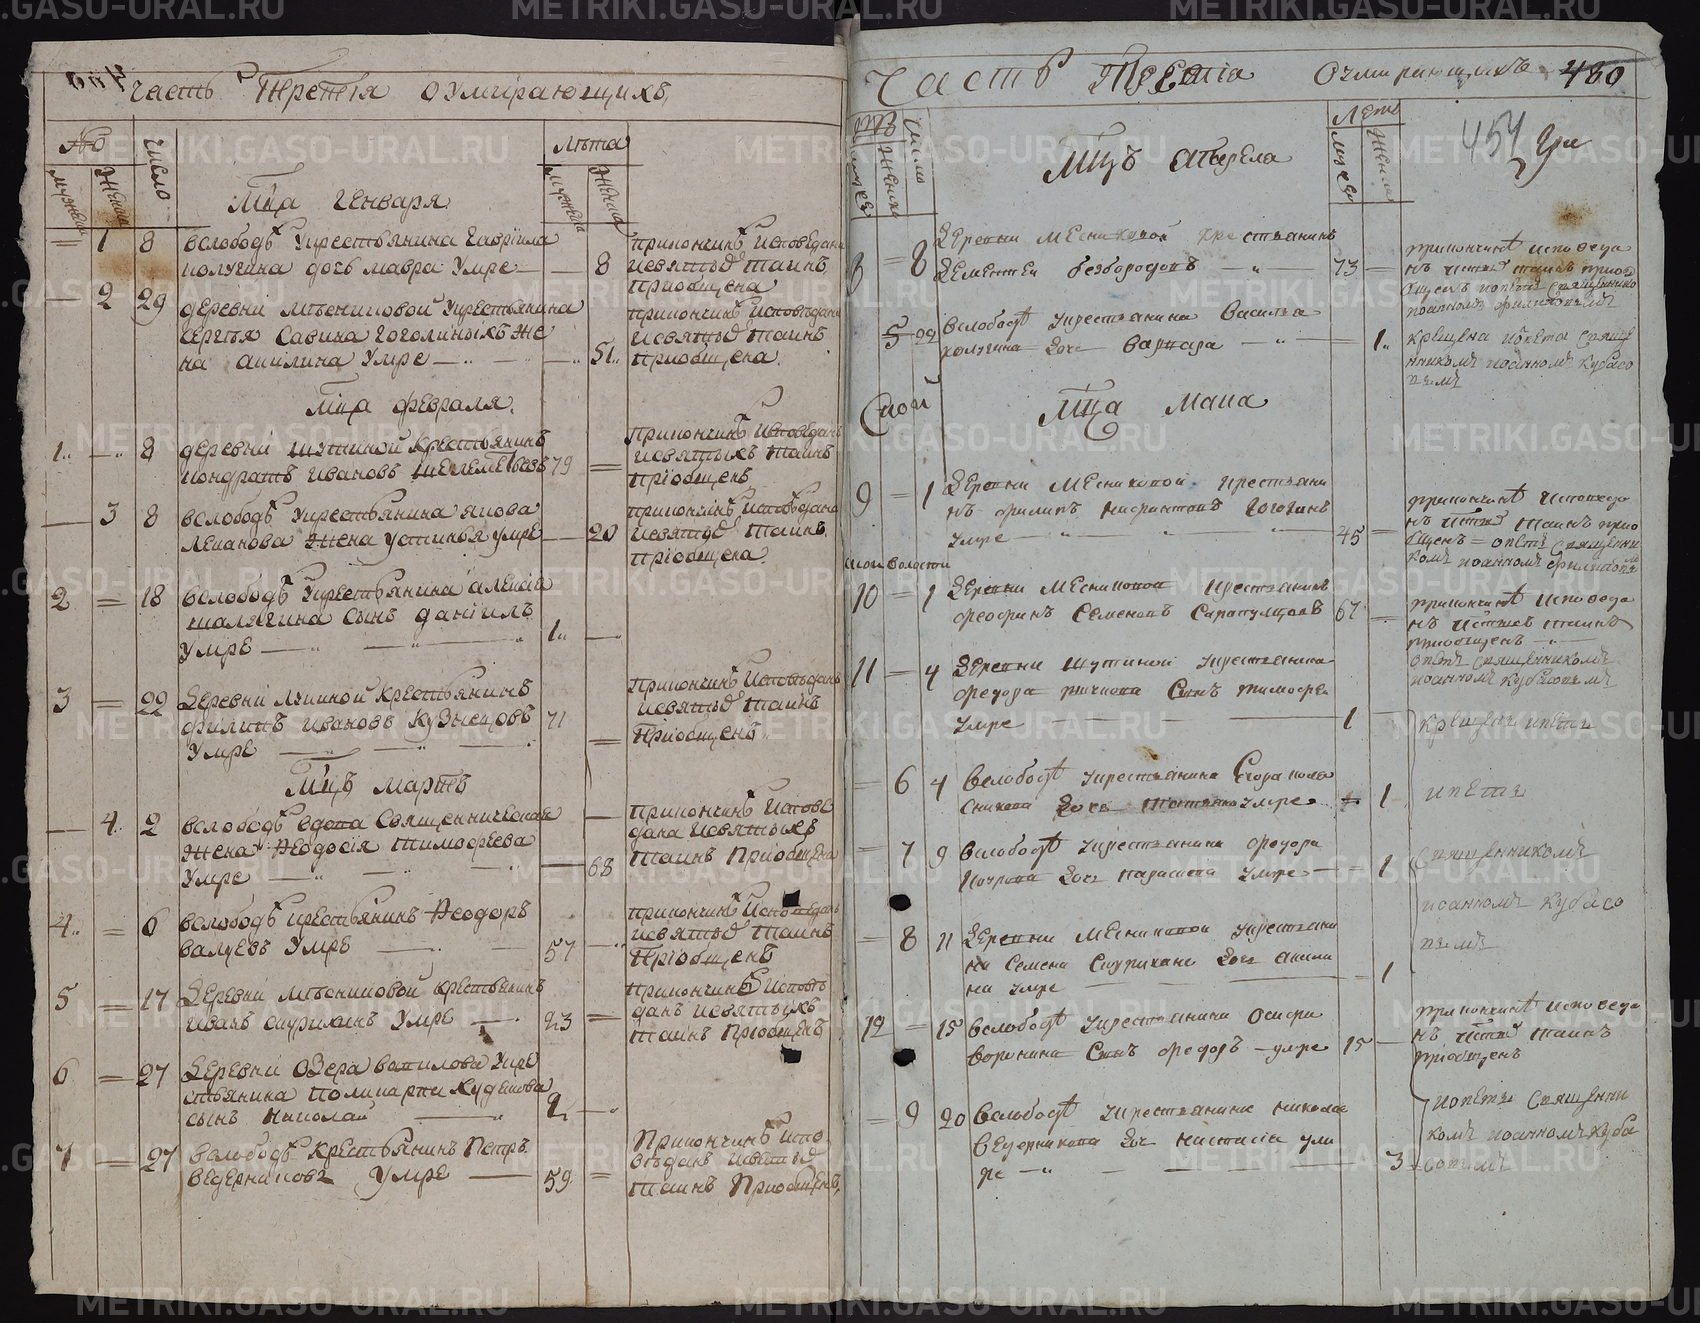 часть Третїя оумирающихъ
№
мужеска
женска
число
лѣта
мужеска
женска
Мца Генваря
1 8 вслободѣ Укрестьянина Гавриїла
полухина дочь мавра Умре — 8
припончинѣ Исповѣдана
исвятыхъ таинъ
приобщена
2 29 деревни мѣсниковой Укрестьянина
Сергѣя Савина Гоголиныхъ же
на акилина Умре — 51
припончинѣ Исповѣдана
исвятыхъ таинъ
приобщена
Мца февраля
1 — 8 деревни шутиной крестьянинъ
кондратъ Ивановъ 79
припончинѣ Исповѣданъ
исвятыхъ таинъ
пріобщенъ
3 8 вслободѣ Укрестьянина якова
жена устинья умре 20
припончинѣ Исповѣдана
исвятыхъ таинъ
пріобщена
2 = 18 вслободѣ Укрестьянина алексѣя
сынъ данїилъ
Умре — 1
3 = 22 Деревни крестьянинъ
филипъ Ивановъ Кузнецовъ 71
Умре
припончинѣ Исповѣданъ
исвятыхъ таинъ
пріобщенъ
Мцъ Мартъ
4 2 вслободѣ вдова Священническая
жена Ѳеодосїя тимофеева
Умре — 68
припончинѣ Испове
дана исвятыхъ
таинъ приобщена
4 = 6 вслободѣ крестьянинъ Ѳеодоръ
валуевъ Умре 57
припончинѣ Исповѣданъ
исвятыхъ таинъ
пріобщенъ
5 = 17 Деревни мѣсниковой крестьянинъ
иванъ скурихинъ Умре 23
припончинѣ Исповѣ
данъ исвятыхъ
таинъ приобщенъ
6 = 27 Деревни Озера вавилова Укре
стьянина поликарпа
сынъ николай 2
7 = 27 вслободѣ крестьянинъ Петръ
ведерниковъ Умре 59
припончинѣ испо
вѣданъ исвятыхъ
таинъ приобщенъ
Часть Третїа Оумирающихъ 480
число
женска
Лета
мужеска
женска
454
Мцъ Апрела
8 = 8 Деревни Месниковой крестьянинъ
Дементей безбородовъ — 73
припончинѣ исповеда
нъ истыхъ таинъ приоб
щенъ иопетъ Священнико
иоанномъ филиповымъ
5 29 Вслободѣ укрестьянина Василья
полухина дочь Варвара — 1
крещена иопета Свяще
нникомъ иоанномъ Кубасо
вымъ
Мца Маиа
9 = 1 Деревни Месниковой крестьяни
нъ филипъ никифоровъ Гоголинъ
умре — 45
припончинѣ исповеда
нъ истыхъ таинъ прио
бщенъ опетъ Священни
комъ иоанномъ филиповы
10 = 1 Деревни Месниковой крестьянинъ
феофанъ Семеновъ Сарапулцовъ 67
припончинѣ исповеда
нъ истыхъ таинъ
приобщенъ
опетъ Священникомъ
иоанномъ Кубасовымъ
11 — 4 Деревни шутиной укрестьянина
федора Сынъ тимофей
умре — 1
крещенъ иопетъ
6 4 Вслободѣ укрестьянина Егора коле
сникова дочь татьяна умре 1
иопета
7 9 Вслободѣ укрестьянина федора
дочь умре — 1
Священникомъ
иоанномъ Кубасо
вымъ
8 11 Деревни Месниковой укрестьяни
на Семена Скурихина дочь акили
на умре — 1
12 = 15 Вслободѣ укрестьянина Осипа
воронина Сынъ федоръ умре 15
припончинѣ исповеда
нъ истыхъ таинъ
приобщенъ
9 20 Вслободѣ укрестьянина николая
Ведерникова доч настасїа уми
ре — 3
иопетъ Священни
комъ иоанномъ Куба
совымъ
METRIKI.GASO-URAL.RU